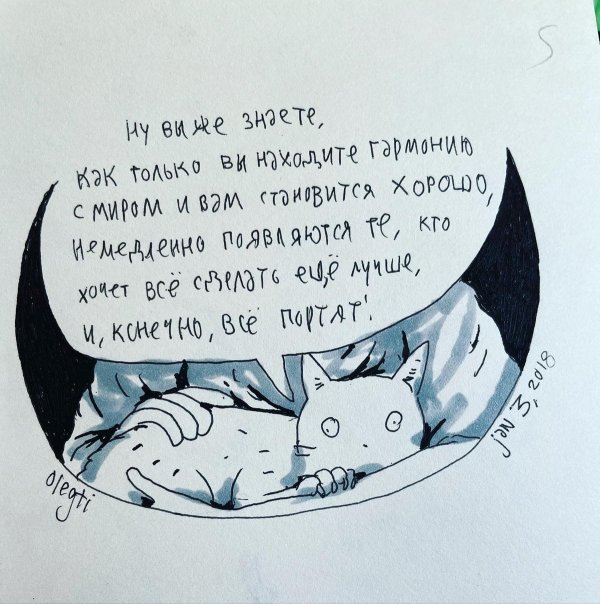 S
ну вы же знаете,
как только вы находите гармонию
с миром и вам становится хорошо,
немедленно появляются те, кто
хочет всё сделать ещё лучше,
и, конечно, всё портят!
olegti
jan 3, 2018